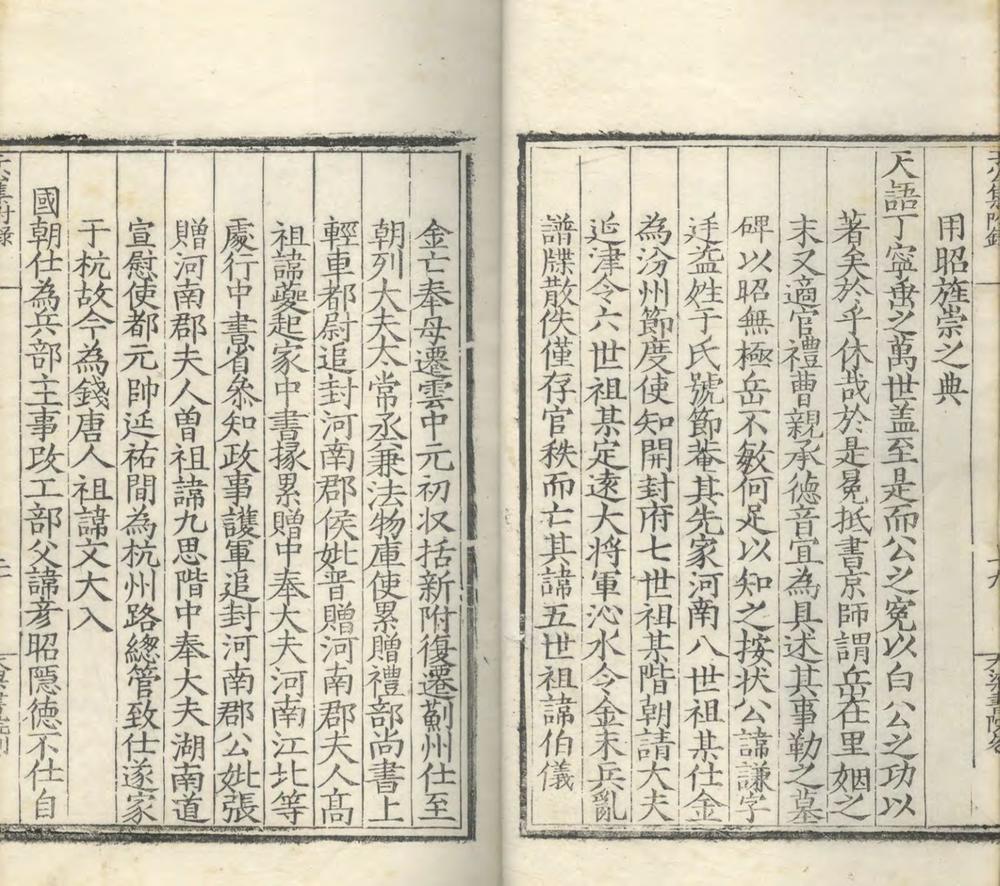 用昭旌崇之典
天語丁寧垂之萬世盖至是而公之寃以白公之功以
著矣於乎休哉於是冕抵書京師謂岳在里姻之
末又適官禮曹親承德音宜為具述其事勒之墓
碑以昭無極岳不敏何足以知之按状公諱謙字
廷益姓于氏號節菴其先家河南八世祖某仕金
為汾州節度使知開封府七世祖某階朝請大夫
延津令六世祖某定遠大将軍沁水令金末兵亂
譜牒散佚僅存官秩而亡其諱五世祖諱伯儀
金亡奉母遷雲中元初収括新附復遷薊州仕至
朝列大夫太常丞兼法物庫使累贈禮部尚書上
輕車都尉追封河南郡侯妣晋贈河南郡夫人髙
祖諱夔起家中書掾累贈中奉大夫河南江北等
處行中書省叅知政事護軍追封河南郡公妣張
贈河南郡夫人曽祖諱九思階中奉大夫湖南道
宣慰使都元帥延祐間為杭州路總管致仕遂家
于杭故今為錢唐人祖諱文大入
國朝仕為兵部主事攺工部父諱彦昭隱德不仕自